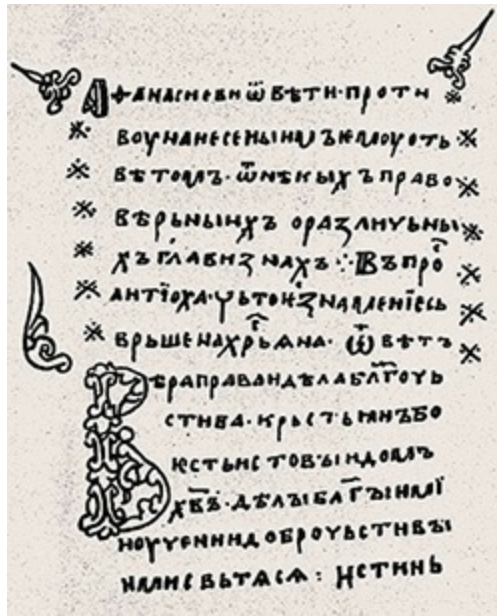 АѲАНАСИЕВИ ѾВѢТИ· ПРОТИ
ВОУ НАНЕСЕНЫИМЪ ѤМОУ ОТЬ
ВѢТОМЪ· Ѿ НѢКЫХЪ ПРАВО
ВѢРЬНЫИХЪ О РАЗЛИЧЬНЫ
ХЪ ГЛАВИЗНАХЪ ⁘ ВЪПРОⷭ҇
АНТЇОХА· ЧЬТО ЗНАМЕНЇЕ СЬ
ВРЬШЕНА ХРⷭ҇ЬѦНА· ѾВѢТЪ
ВѢРА ПРАВА И ДѢЛА БЛ҃ГОЧЬ
СТИВА· КРЬСТЬꙖНЪ БО
ѤСТЬ ИСТОВЪІИ ДОМЪ
ХВ҃Ъ· ДѢЛЫ БЛА҃ГЪІИМЇ
И ОУЧЕНИИ ДОБРОЧЬСТИВЪІ
ИСТИНЬ